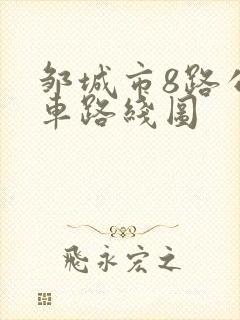 邹城市8路公
車路綫圖
飛永宏之